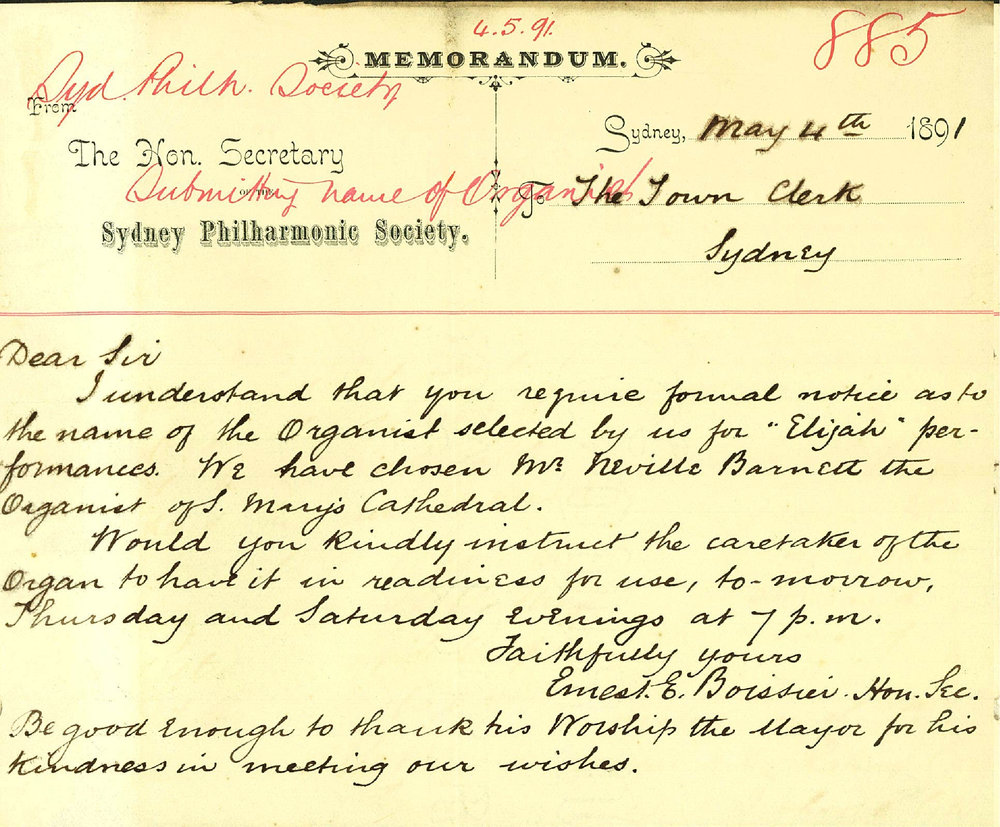 4.5.91.
885
MEMORANDUM.
Syd. Philh. Society
From
Sydney, May 4th 1891
The Hon. Secretary
OF THE
Submitting name of Organist
To The Town Clerk
Sydney Philharmonic Society.
Sydney
Dear Sir
I understand that you require formal notice as to
the name of the Organist selected by us for "Elijah" per-
formances. We have chosen Mr Neville Barnett the
Organist of S. Mary's Cathedral.
Would you kindly instruct the caretaker of the
Organ to have it in readiness for use, to-morrow,
Thursday and Saturday evenings at 7 p.m.
Faithfully yours
Ernest. E. Boissier. Hon. Sec.
Be good enough to thank his Worship the Mayor for his
kindness in meeting our wishes.